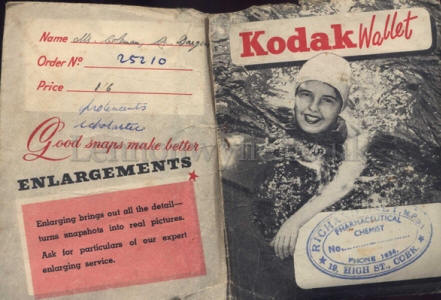 Name
Order Nº 25210
Price 1'6
Good snaps make better
ENLARGEMENTS
Enlarging brings out all the detail—
turns snapshots into real pictures.
Ask for particulars of our expert
enlarging service.
Kodak Wallet
PHARMACEUTICAL
CHEMIST
No.
PHONE
19, HIGH ST., CORK